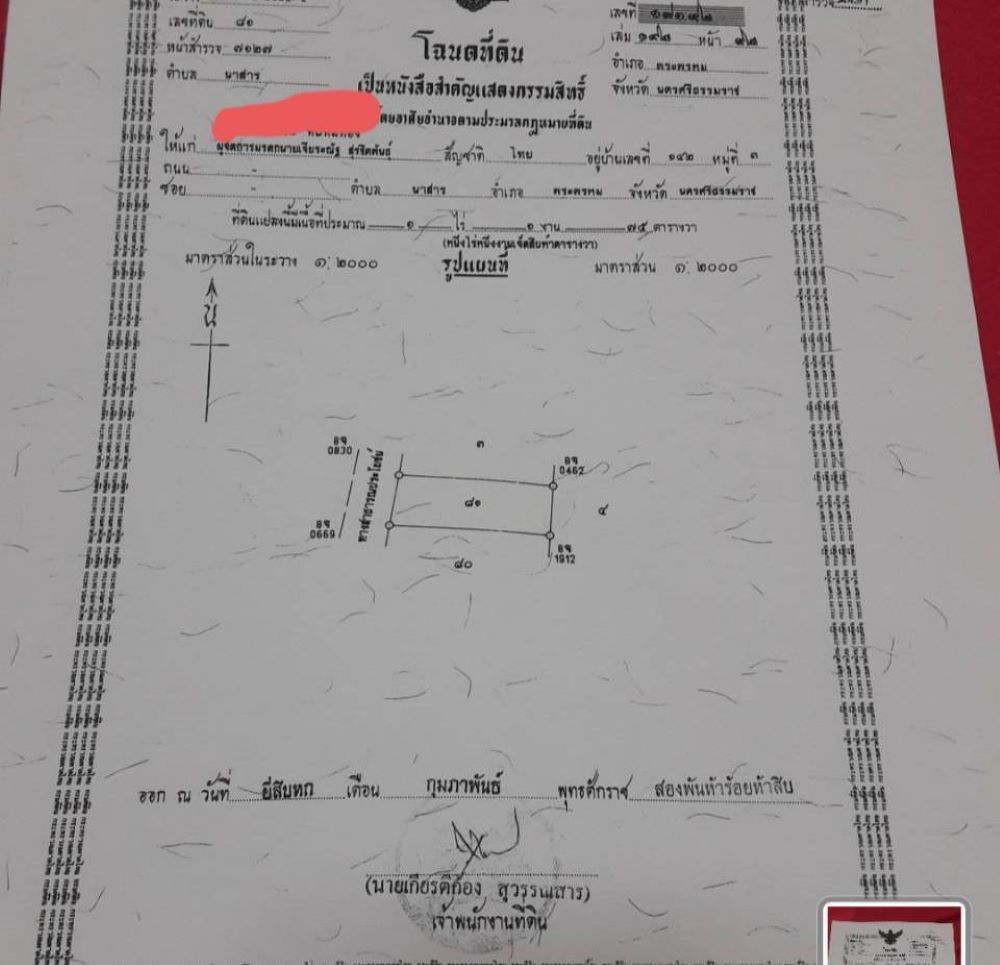 เลขที่ดิน ๘๑
เลขที่
หน้าสำรวจ ๗๑๒๗
เล่ม ๑๙๘ หน้า ๙๘
โฉนดที่ดิน
ตำบล นาสาร
อำเภอ พระพรหม
เป็นหนังสือสำคัญแสดงกรรมสิทธิ์
จังหวัด นครศรีธรรมราช
โดยอาศัยอำนาจตามประมวลกฎหมายที่ดิน
ให้แก่ ผู้จัดการมรดกนายเจียรณัฐ สุรชิตพันธ์ สัญชาติ ไทย อยู่บ้านเลขที่ ๑๔๒ หมู่ที่ ๓
ถนน -
ซอย - ตำบล นาสาร อำเภอ พระพรหม จังหวัด นครศรีธรรมราช
ที่ดินแปลงนี้มีเนื้อที่ประมาณ ๑ ไร่ ๑ งาน ๗๕ ตารางวา
(หนึ่งไร่หนึ่งงานเจ็ดสิบห้าตารางวา)
มาตราส่วนในระวาง ๑: ๒๐๐๐ รูปแผนที่ มาตราส่วน ๑: ๒๐๐๐
น
๓
อจ
0830
อจ
0462
ทางสาธารณประโยชน์
๘๑
๔
อจ
0669
อจ
1912
๘๐
ออก ณ วันที่ ยี่สิบหก เดือน กุมภาพันธ์ พุทธศักราช สองพันห้าร้อยห้าสิบ
(นายเกียรติก้อง สุวรรณสาร)
เจ้าพนักงานที่ดิน